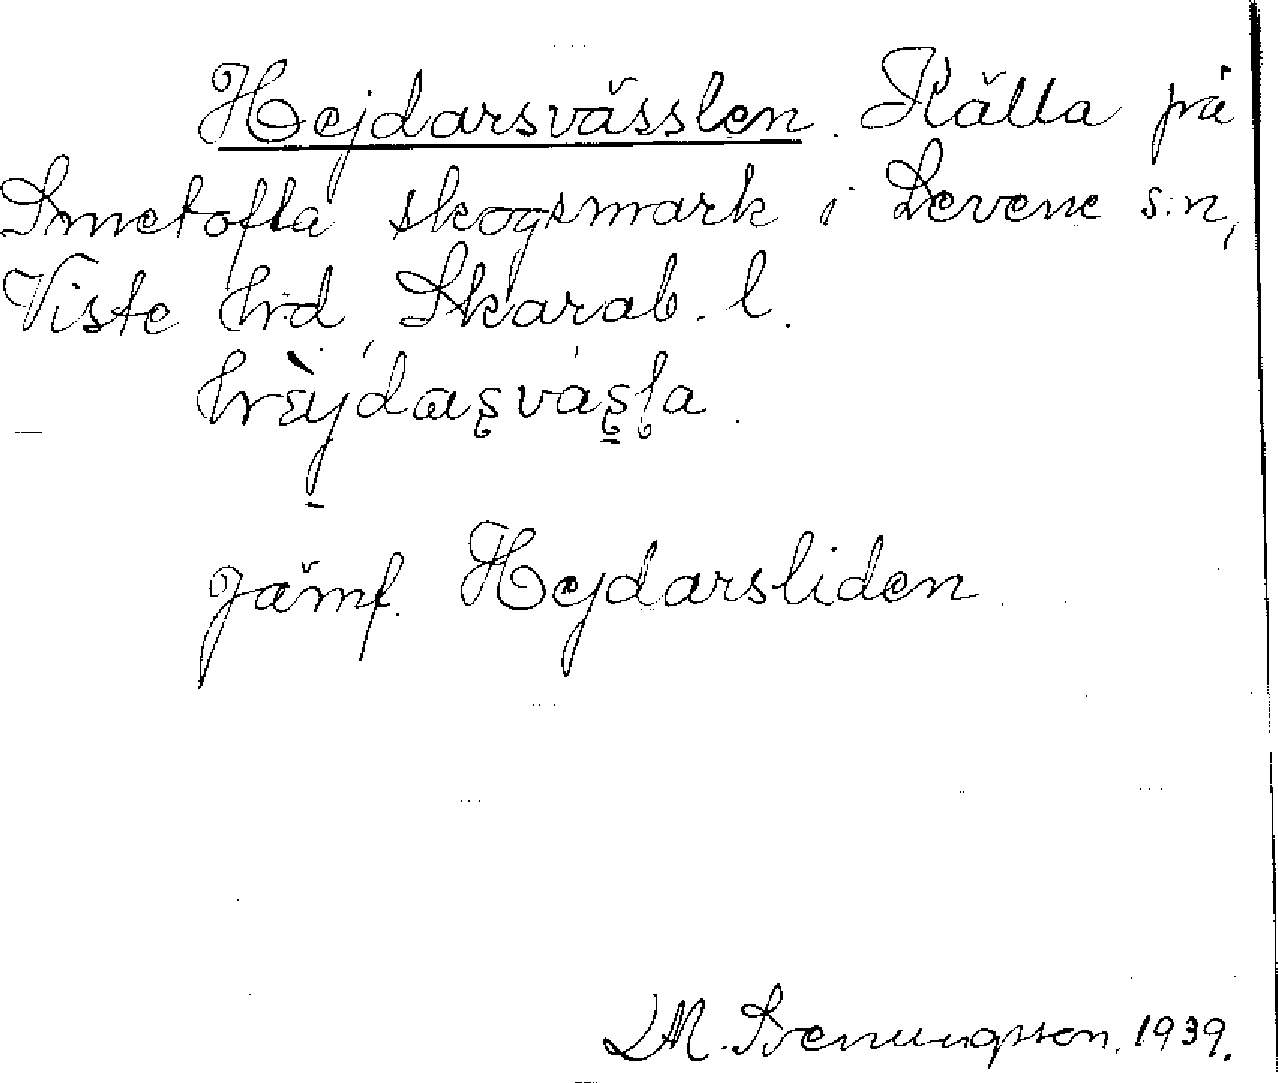 Hejdarsvässlen. Källa på
Smetofta skogsmark i Levene s:n,
Viste hrd, Skarab. l.
hæ̀jdaʂvaʂɭa.
Jämf. Hejdarsliden
L M. Svenungsson. 1939.